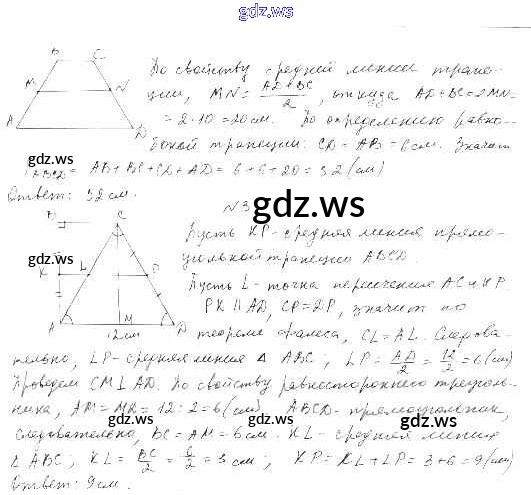 gdz.ws
По свойству средней линии трапе-
ции, MN = AD+BC / 2, откуда AD+BC = 2MN =
= 2·10 = 20 см. По определению равно-
бокой трапеции: CD = AB = 6 см. Значит
gdz.ws
ABCD = AB + BC + CD + AD = 6 + 6 + 20 = 32 (см)
Ответ: 32 см.
N3
gdz.ws
Пусть KP - средняя линия прямо-
угольной трапеции ABCD.
gdz.ws
Пусть L - точка пересечения AC и KP.
PK || AD, CP = DP, значит по
теореме Фалеса, CL = AL. Следова-
тельно, LP - средняя линия Δ ABC; LP = AD/2 = 12/2 = 6 (см)
Проведем CM ⊥ AD. По свойству равностороннего треуголь-
ника, AM = MD = 12 : 2 = 6 (см) ABCD - прямоугольник,
gdz.ws
следовательно, BC = AM = 6 см. KL - средняя линия
gdz.ws
Δ ABC; KL = BC/2 = 6/2 = 3 см; KP = KL + LP = 3 + 6 = 9 (см)
Ответ: 9 см.
gdz.ws
B C
M N
A D
B C
K L
A M D
12 см